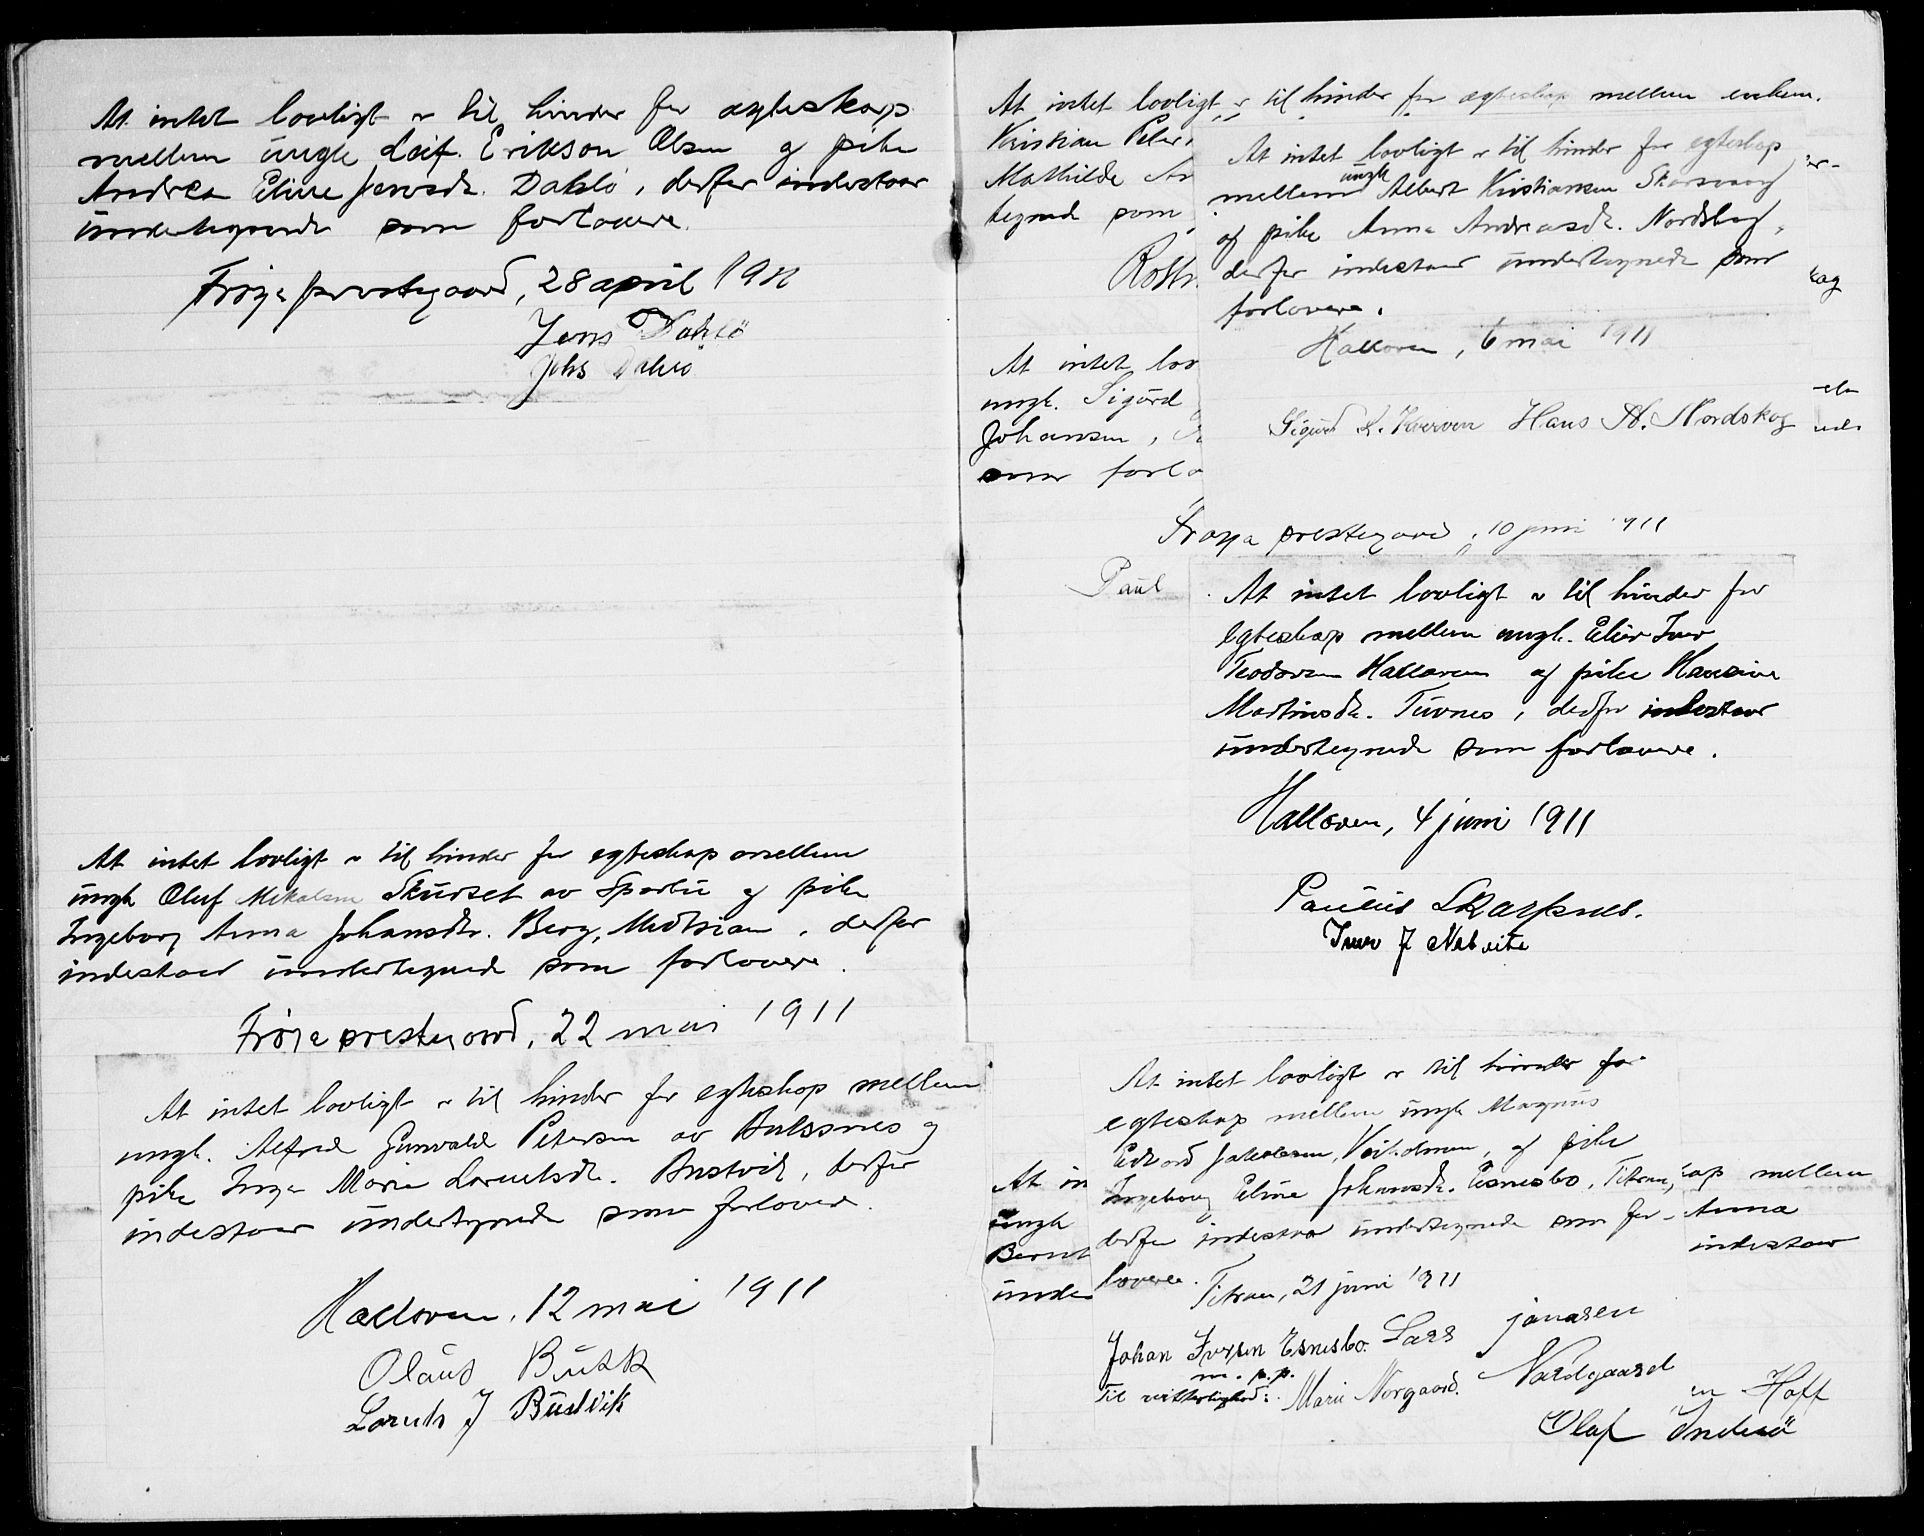 At intet lovligt er til hinder for ægteskap
mellem ungk Leif Erikson Olsen og pike
Andrea Eline Jensdtr. Dahlö, derfor indestaar
undertegnede som forlovere.
Frøya prestegaard, 28 april 1911
Jens Dahlö
Johs Dahlö
At intet lovligt er til hinder for egteskap mellem
ungk Oluf Mikalsen Skurset av og pike
Ingeborg Anna Johansdtr. Berg, derfor
indestaar undertegnede som forlovere.
Frøya prestegaard, 22 mai 1911
At intet lovligt er til hinder for egteskap mellem
ungk. Alfred Gunvald Petersen av og
pike Inga Marie Lorentsdtr. Bustvik, derfor
indestaar undertegnede som forlovere.
Halloren, 12 mai 1911
Olaus
Lorents J Bustvik
At intet lovligt er til hinder for egteskap mellem enkem.
Kristian Peter
Mathilde
tegnede som
At intet lovligt er til hinder for egteskap
mellem ungk Albert Kristiansen
og pike Anna Andreasdtr. Nordskog,
derfor indestaar undertegnede som
forlovere.
Halloren, 6 mai 1911
Sigurd L. Kverven Hans A. Nordskog
At intet lov
ungk. Sigurd
Johansen,
som forlo
Frøya prestegaard, 10 juni 1911
Paul
At intet lovligt er til hinder for
egteskap mellem ungk. Iver
Teodorsen Halloren og pike Hansine
Martinsdtr. derfor indestaar
undertegnede som forlovere.
Halloren, 4 juni 1911
Paulus Skarpnes.
Iver J
At intet lovligt er til hinder for
egteskap mellem ungk Magnus
Edvard Jakobsen, og pike
Ingeborg Eline Johansdtr. Esnesbo, Titran,
derfor indestaar undertegnede som for-
lovere.
Titran, 21 juni 1911
Johan Iversen Esnesbo. Lars Jonasen
m. p. p.
Til vitterlighed: Marie Norgaard. Nordgaard
At in
ungk
Bernt
under
kap mellem
Anna
indestaar
Hoff
Olaf